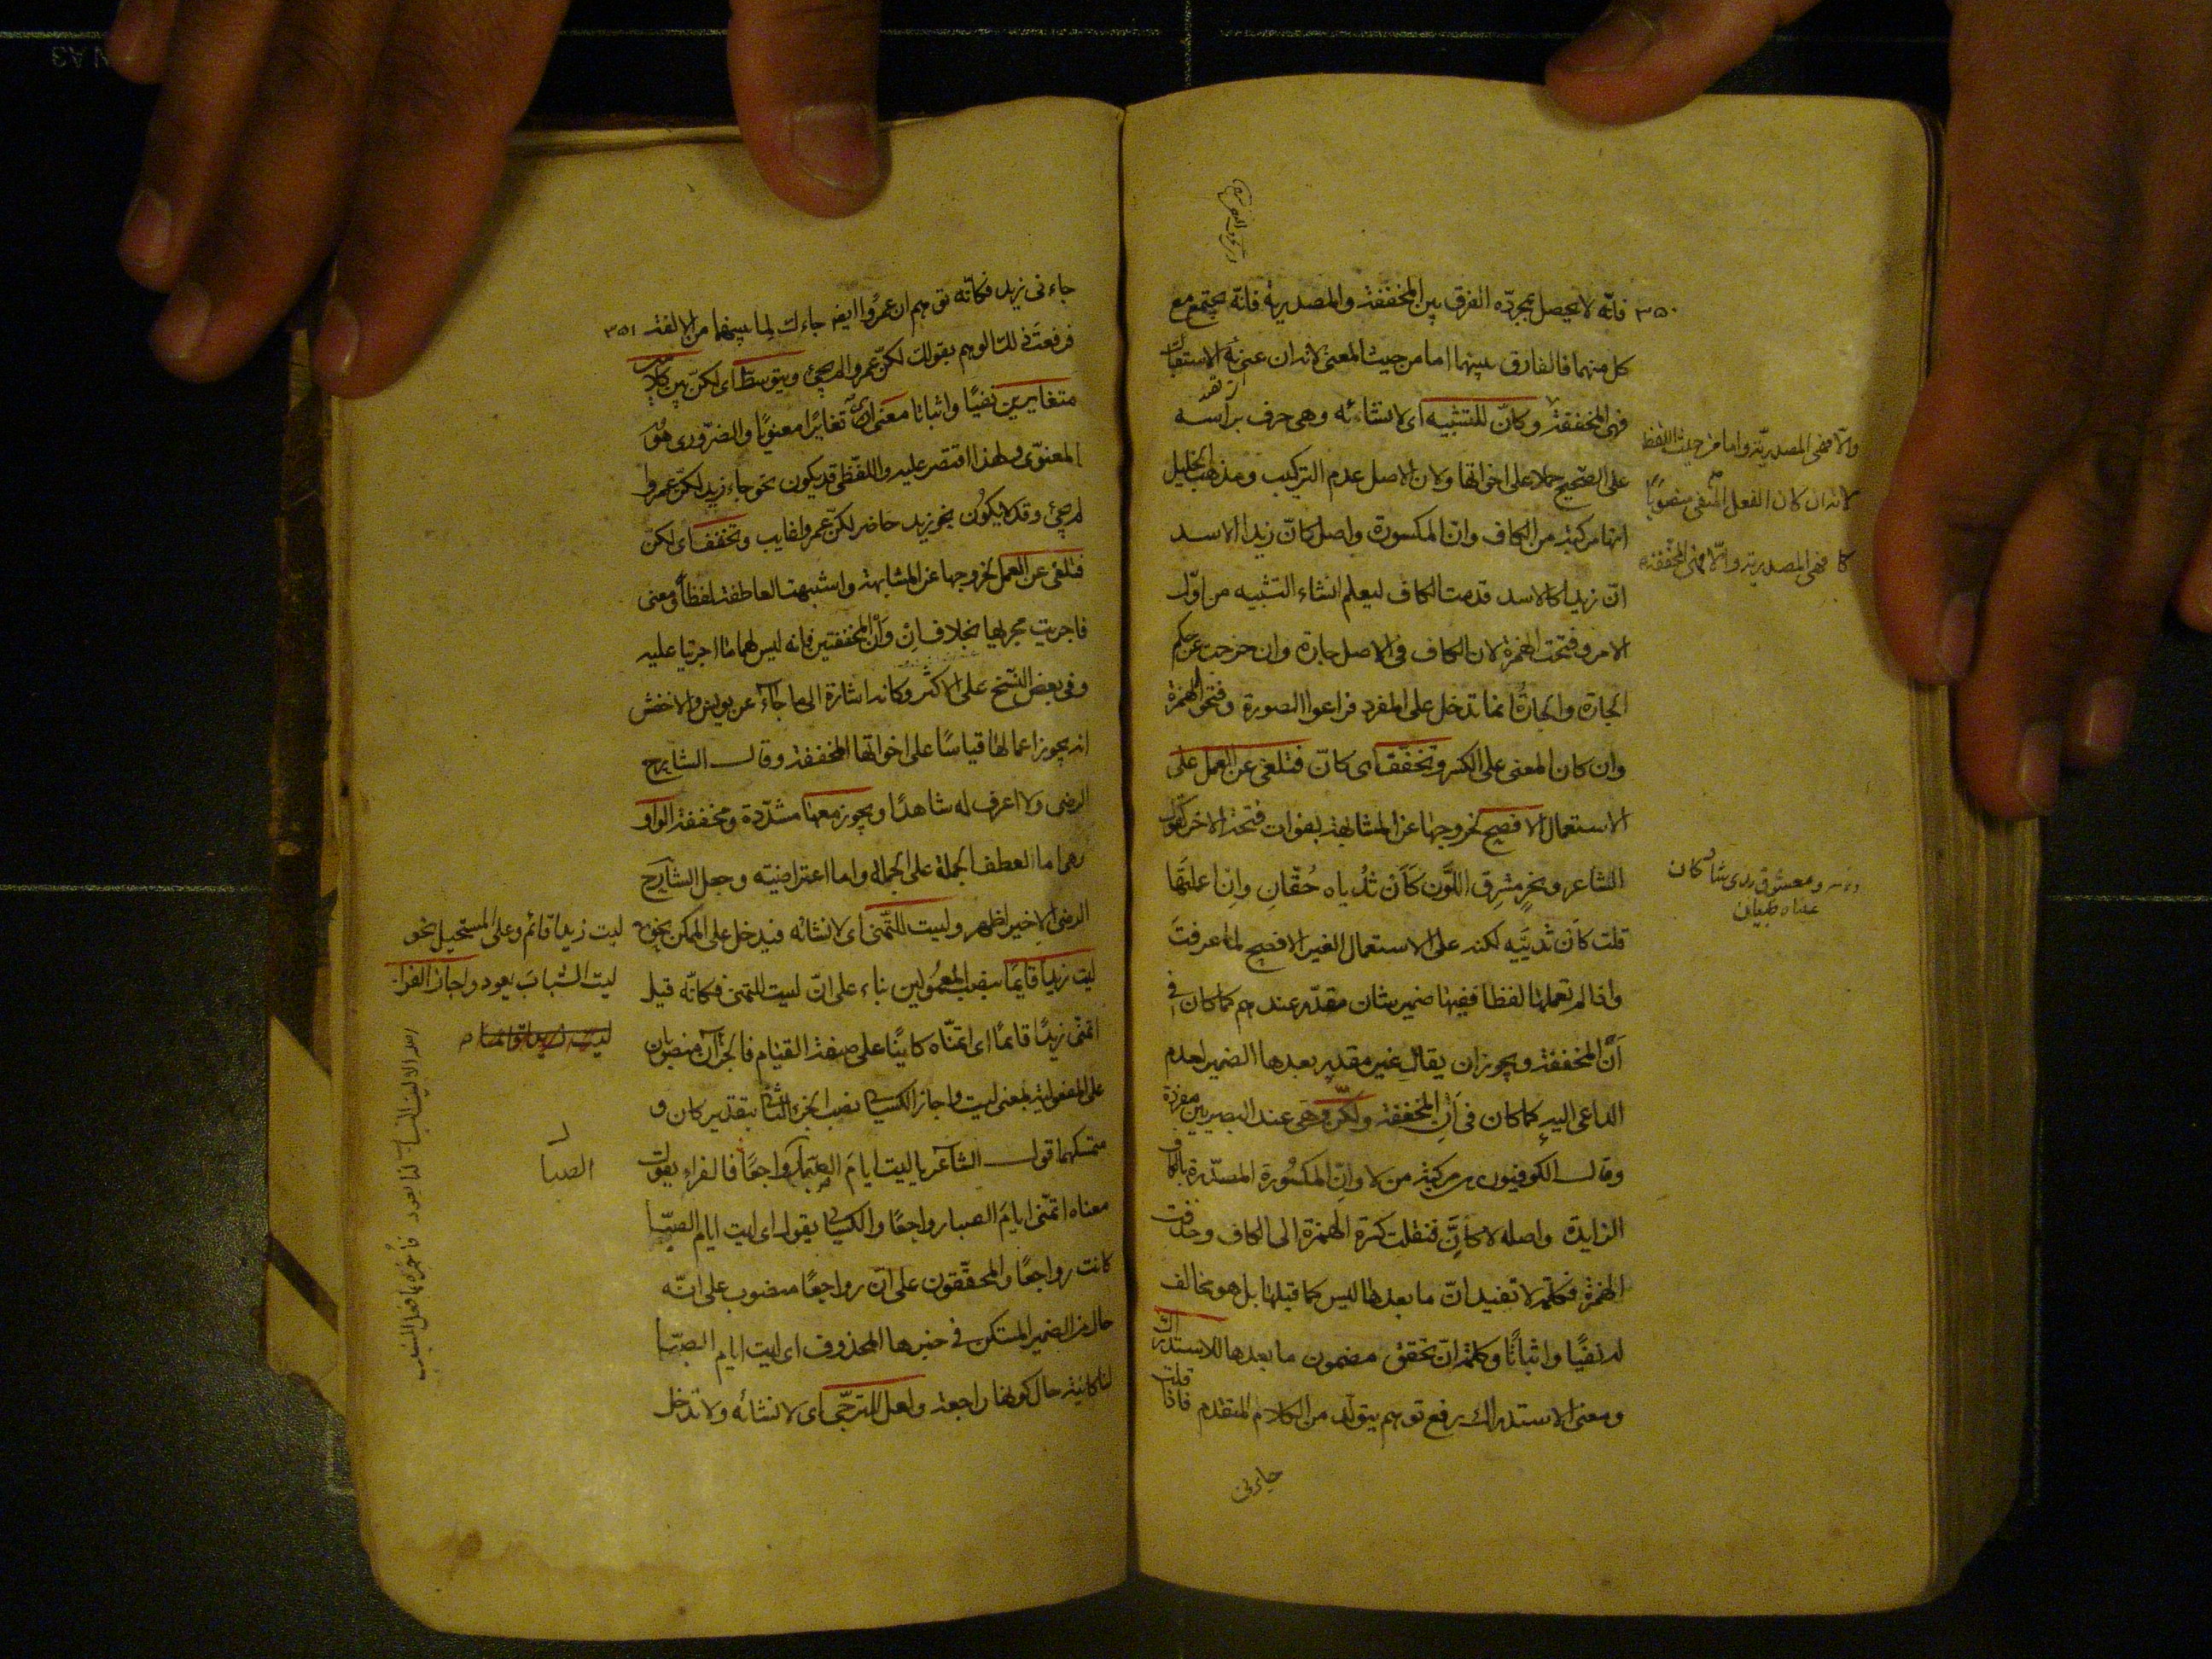 ٣٥٠ فانّه لا يحصل بمجرّده الفرق بين المخففة والمصدرية فانّه يجتمع مع
كل منهما فالفارق بينهما اما من حيث المعنى لانه ان عنى به الاستقبال
فهى المخففة وكانّ للتشبيه اى لانشائه وهى حرف براسه
على الصّحيح حملا على اخواتها ولان الاصل عدم التركيب ومذهب الخليل
انها مركبة من الكاف وانّ المكسورة واصل كانّ زيدا الاسد
انّ زيدا كالاسد قدمت الكاف ليعلم انشاء التشبيه من اوّل
الامر وفتحت الهمزة لان الكاف فى الاصل جارة وان خرجت عن حكم
الجارة والجارّة انما تدخل على المفرد فراعوا الصورة وفتحوا الهمزة
وان كان المعنى على الكسر وتخفّف اى كانّ فتلغى عن العمل على
الاستعمال الافصح لخروجها عن المشابهة بفوات فتحة الاخر كقول
الشاعر ونحرٍ مشرق اللّون كأن ثدياه حُقّانِ وان اعملتَها
قلت كأن ثدييه لكنه على الاستعمال الغير الافصح لما عرفتَ
واذا لم تعملها لفظا ففيها ضمير شان مقدّر عندهم كما كان فى
أنّ المخففة ويجوز ان يقال غير مقدر بعدها الضمير لعدم
الداعى اليه كما كان فى أن المخففة ولكنّ وهى عند البصريين مفردة
وقال الكوفيون مركبة من لا وانّ المكسُورة المصدّرة بالكاف
الزايدة واصله لا كأنّ فنقلت كسرة الهمزة الى الكاف وحذفت
الهمزة فكلمة لا تفيد انّ ما بعدها ليس كما قبلها بل هو مخالف
له نفيًا واثباتًا وكلمة انّ تحقق مضمون ما بعدها للاستدراك
ومعنى الاستدراك رفع توهم يتولد من الكلام المتقدم فاذا قلت
جاءنى
والّا فهى المصدريّة واما من حيث اللفظ
لانه ان كان الفعل المنفى منصوبًا
فهى المصدرية والّا فهى المخففة
جاءنى زيد فكانّه توهم ان عمروا ايضا جاءك لما بينهما من الالفة ٣٥١
فرفعت ذلك الوهم بقولك لكنّ عمروا لم يجئ ويتوسّط اى لكنّ بين كلامين
متغايرين نفيًا واثباتا معنى اى تغايرًا معنويًا والضّرورى هو
المعنوّى ولهذا اقتصر عليه واللفظى قد يكون نحو جاء زيد لكنّ عمروا
لم يجئ وقد لا يكون نحو زيد حاضر لكنّ عمروا غايب وتخفف اى لكنّ
فتلغى عن العمل لخروجها عن المشابهة واشبهت العاطفة لفظًا ومعنى
فاجريت مجراها بخلاف ان وأن المخففتين فانه ليس لهما ما اجرتا عليه
وفى بعض النّسخ على الاكثر وكانه اشارة الى ما جاء عن يونس والاخفش
انه يجوز اعمالها قياسًا على اخواتها المخففة وقال الشارح
الرضى ولا اعرف له شاهدًا ويجوز معها مشدّدة ومخففة الواو
وهى اما لعطف الجملة على الجملة واما اعتراضيّه وجعل الشارح
الرضى الاخير اظهر وليت للتّمنى اى لانشائه فيدخل على الممكن نحو
ليت زيدًا قايمًا بنصب المعمُولين بناء على انّ ليت للتمنى فكانّه قيل
اتمنى زيدًا قائمًا اى اتمنّاه كاينًا على صفة القيام فالجزآن منصوبان
على المفعولية بمعنى ليت واجاز الكسائى نصب الجزء الثانى بتقدير كان و
متمسكهما قول الشاعر يا ليت ايامَ الصّبا رواجعًا فالفراء يقول
معناه اتمنّى ايامَ الصبا رواجعًا والكسائى يقول اى ليت ايام الصبا
كانت رواجعًا والمحقّقون على انّ رواجعًا منصوب على انّه
حال من الضمير المستكن فى خبرها المحذوف اى ليت ايام الصبا
لنا كائنة حال كونها راجعة ولعل للترجّى اى لانشائه ولا تدخل
ليت زيداً قائم وعلى المستحيل نحو
ليت الشبابَ يعود واجاز الفراء
الصبا